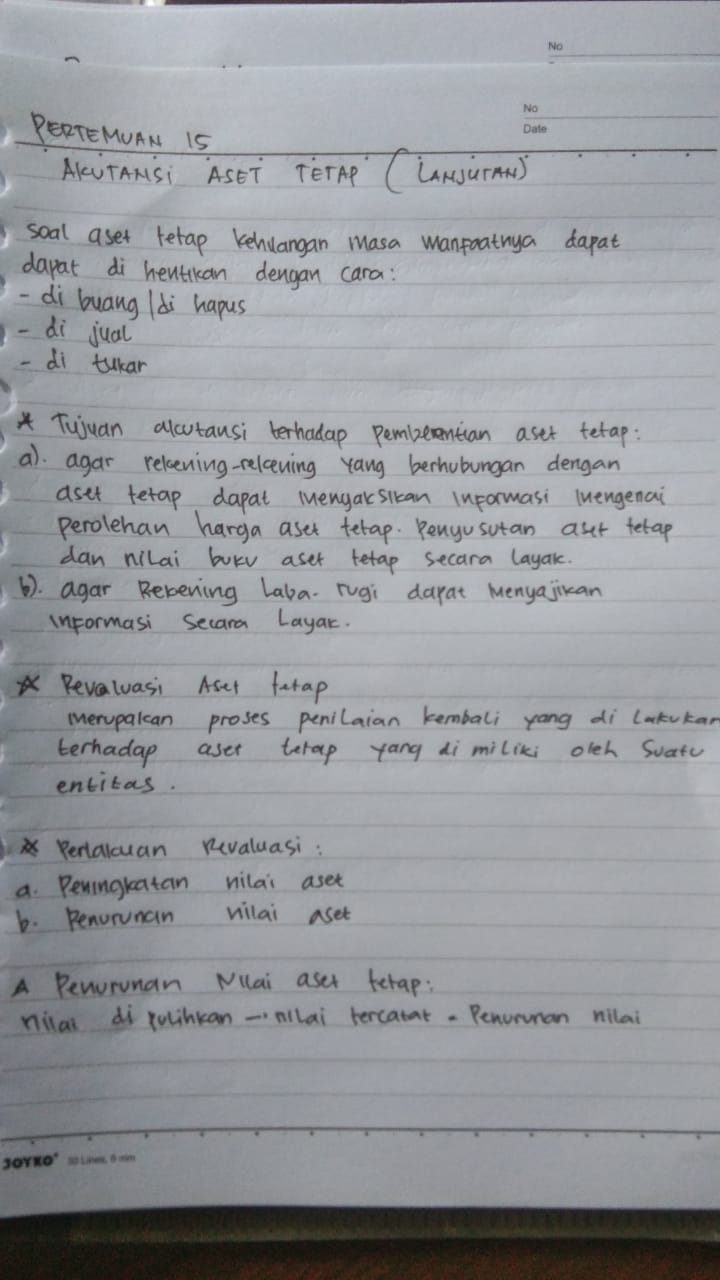 No
No
Date
PERTEMUAN 15
AKUTANSI ASET TETAP (LANJUTAN)
soal aset tetap kehilangan masa manfaatnya dapat
dapat di hentikan dengan cara:
- di buang / di hapus
- di jual
- di tukar
* Tujuan akutansi terhadap aset tetap:
a). agar rekening-rekening yang berhubungan dengan
aset tetap dapat menyaksikan informasi mengenai
perolehan harga aset tetap. Penyusutan aset tetap
dan nilai buku aset tetap secara layak.
b). agar Rekening Laba-rugi dapat Menyajikan
informasi Secara Layak.
* Revaluasi Aset tetap
merupakan proses penilaian kembali yang di Lakukan
terhadap aset tetap yang di miliki oleh Suatu
entitas.
* Perlakuan Revaluasi:
a. Peningkatan nilai aset
b. Penurunan nilai aset
* Penurunan Nilai aset tetap:
nilai di pulihkan - nilai tercatat = Penurunan nilai
JOYKO 30 Lines, 8 mm